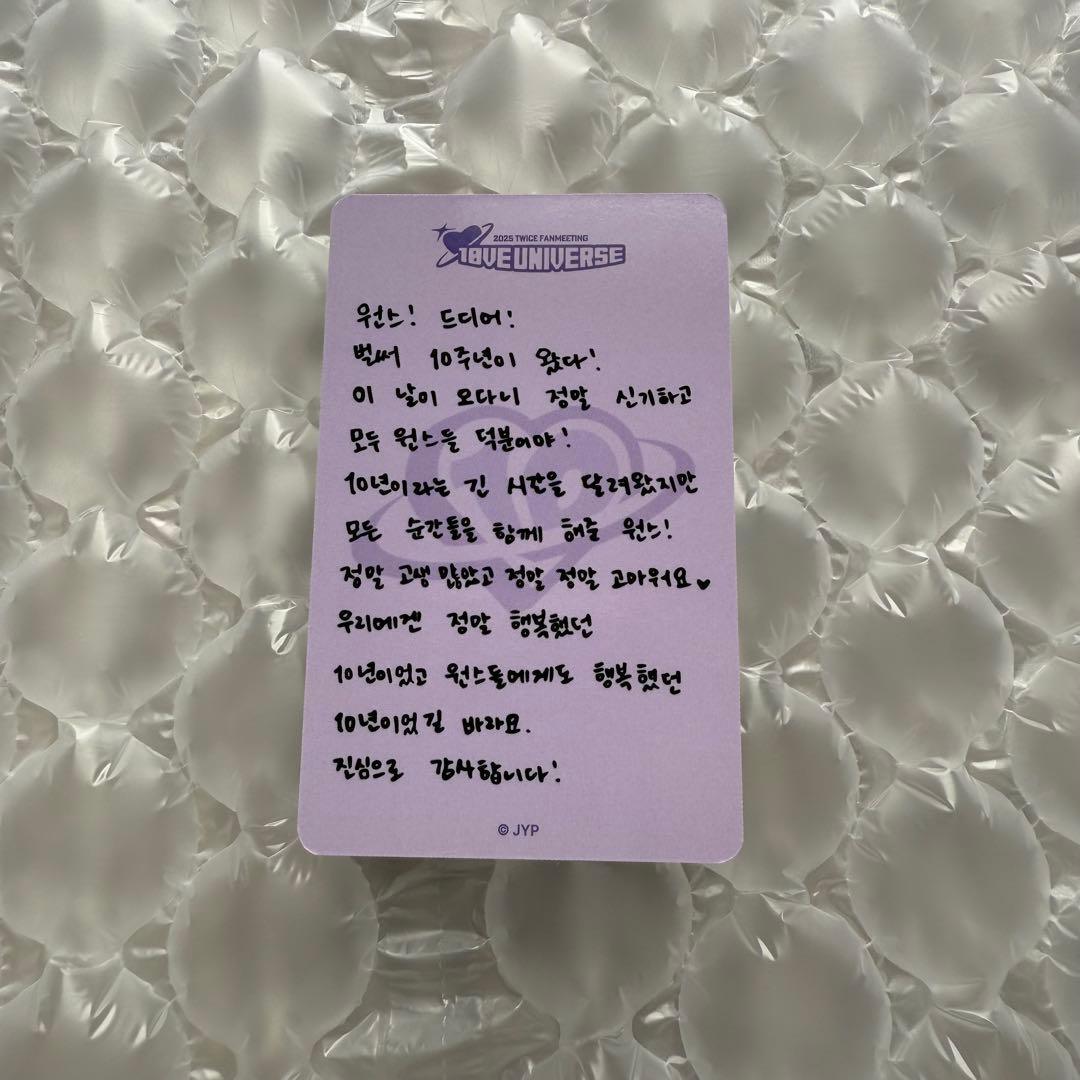 2025 TWICE FANMEETING
10VE UNIVERSE
원스! 드디어!
벌써 10주년이 왔다!
이 날이 오다니 정말 신기하고
모두 원스들 덕분이야!
10년이라는 긴 시간을 달려왔지만
모든 순간들을 함께 해준 원스!
정말 고생 많았고 정말 정말 고마워요♥
우리에겐 정말 행복했던
10년이었고 원스들에게도 행복했던
10년이었길 바라요.
진심으로 감사합니다!
© JYP